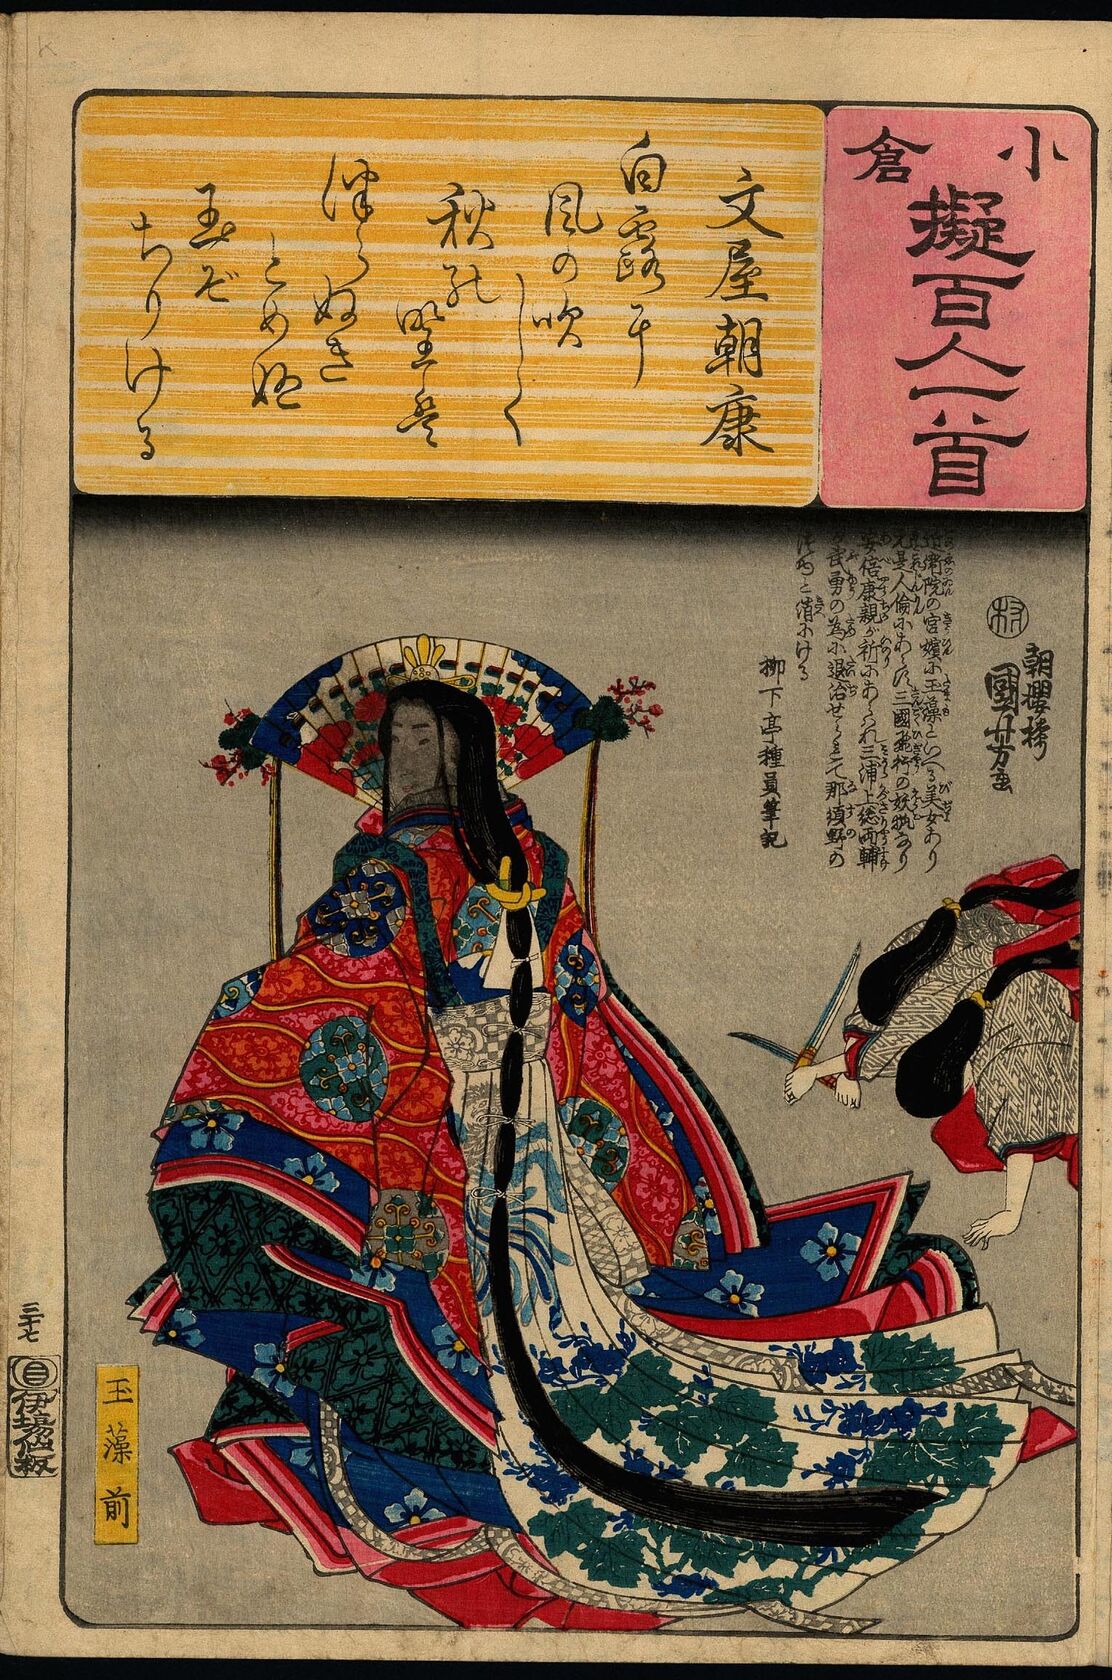 小倉
擬百人一首
文屋朝康
白露に
風の吹
しく
秋の野は
つらぬき
とめぬ
玉ぞ
ちりける
朝櫻樓
國芳画
近衛院の宮嬪に玉藻といへる美女あり
是人倫にあらず三國飛行の妖狐なり
安倍康親が祈にあらはれ三浦上総両輔
武勇の為に退治せられて那須野の
消にける
柳下亭種員筆記
玉藻前
三十七
伊場仙板